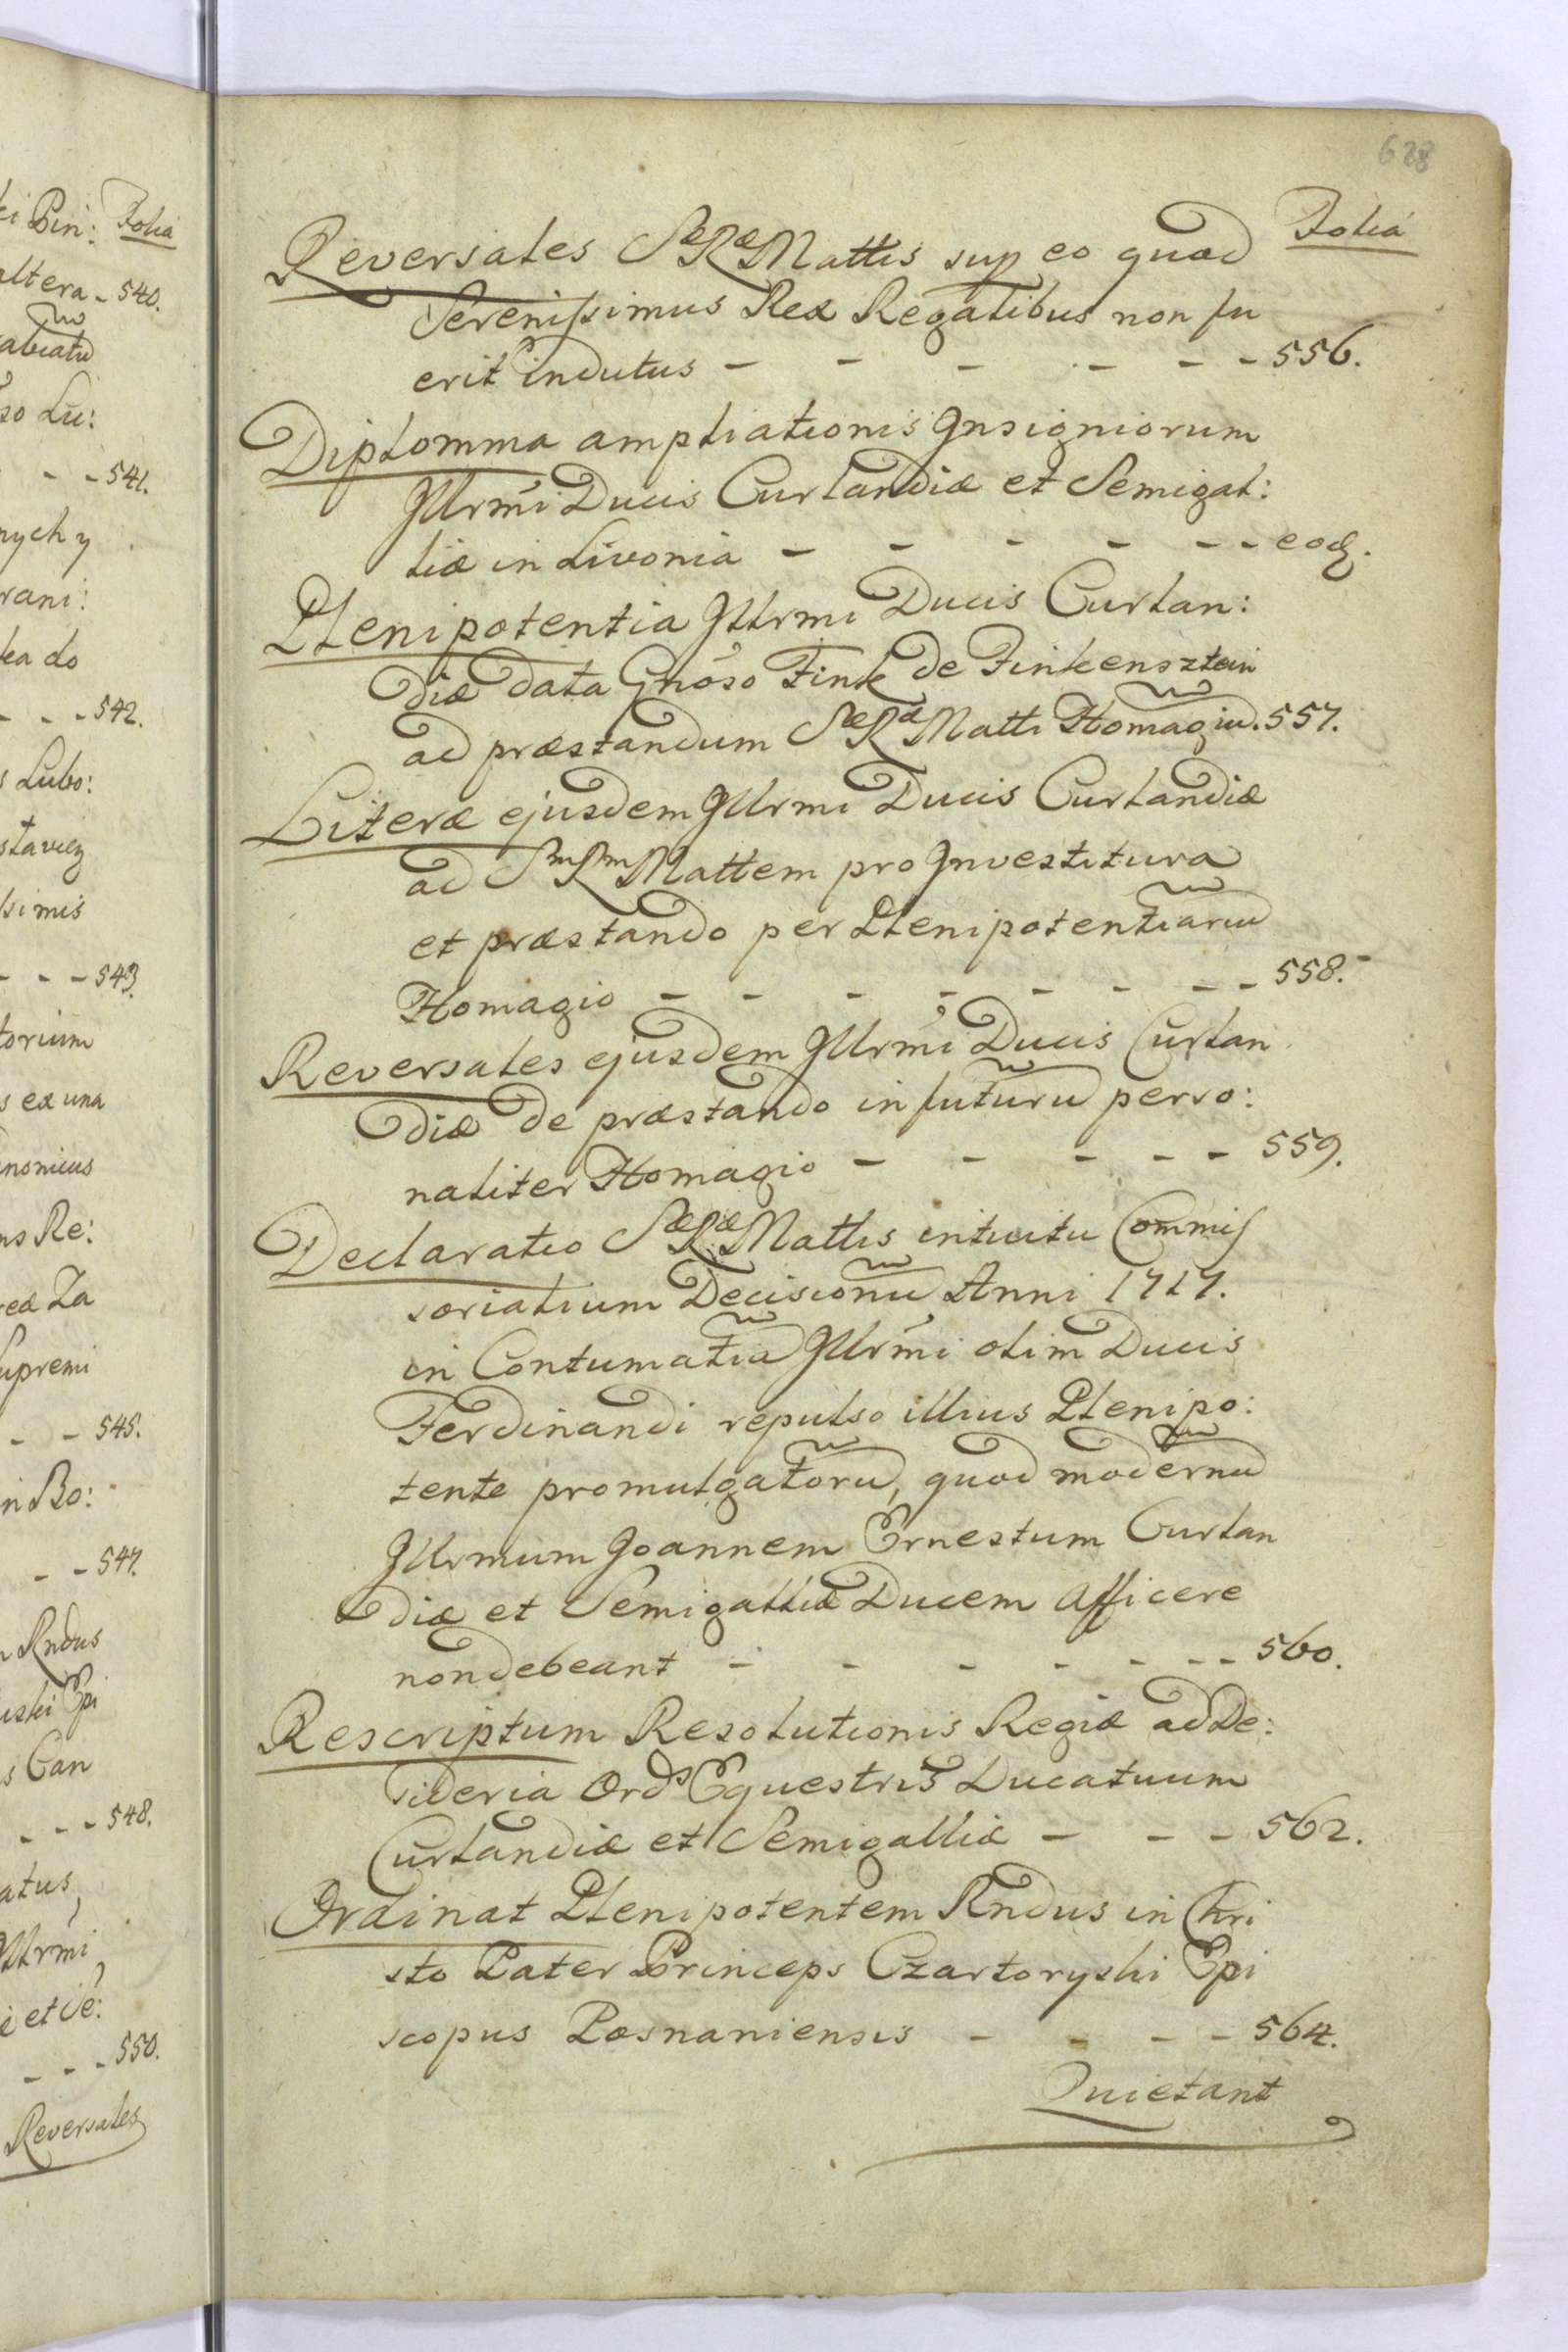 ei Pin: Folia
altera - 540.
abiatu
so Lu:
- - 541.
nych y
rani:
ea do
- - - 542.
s Lubo:
stavicz
ssimis
- - - 543.
torium
s ex una
nonicus
ns Re:
rea Za
Supremi
- - 545.
in Bo:
- - 547.
Rndus
uski Epi
s Can
- - - 548.
atus,
Illrmi
et Se:
- - - 550.
Reversales
628
Folia
Reversales Sæ Ræ Mattis sup eo quod
Serenissimus Rex Regalibus non fu
erit indutus - - - - - - 556.
Diplomma ampliationis Insigniorum
Illrmi Ducis Curlandiæ et Semigal:
liæ in Livonia - - - - - - eod.
Plenipotentia Illrmi Ducis Curlan:
diæ data Gnoso Fink de Finkensztein
ad præstandum Sæ Ræ Matti Homagiũ. 557.
Literæ ejusdem Illrmi Ducis Curlandiæ
ad Sm Rm Mattem pro Investitura
et præstando per Plenipotentiariũ
Homagio - - - - - - - - 558.
Reversales ejusdem Illrmi Ducis Curlan
diæ de præstando in futurũ perso:
naliter Homagio - - - - - 559.
Declaratio Sæ Ræ Mattis intuitu Commis
sorialium Decisionũ Anni 1717.
in Contumatia Illrmi olim Ducis
Ferdinandi repulso illius Plenipo:
tente promulgatorũ, quod modernũ
Illrmum Joannem Ernestum Curlan
diæ et Semigalliæ Ducem afficere
non debeant - - - - - - - 560.
Rescriptum Resolutionis Regiæ ad De:
sideria Ords Equestris Ducatuum
Curlandiæ et Semigalliæ - - - 562.
Ordinat Plenipotentem Rndus in Chri
sto Pater Princeps Czartoryski Epi
scopus Posnaniensis - - - - 564.
Quietant